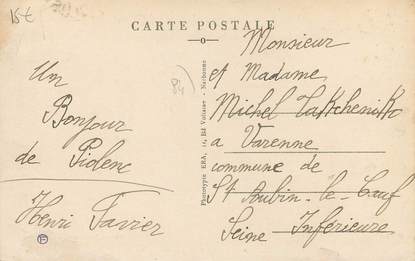 15€
CARTE POSTALE
84
Un
Bonjour
de Piolenc
Henri Favier
Phototypie ERA, 11, Bd Voltaire - Narbonne
Monsieur
et Madame
Michel
a Varenne
commune de
St Aubin-le-Cauf
Seine Inférieure